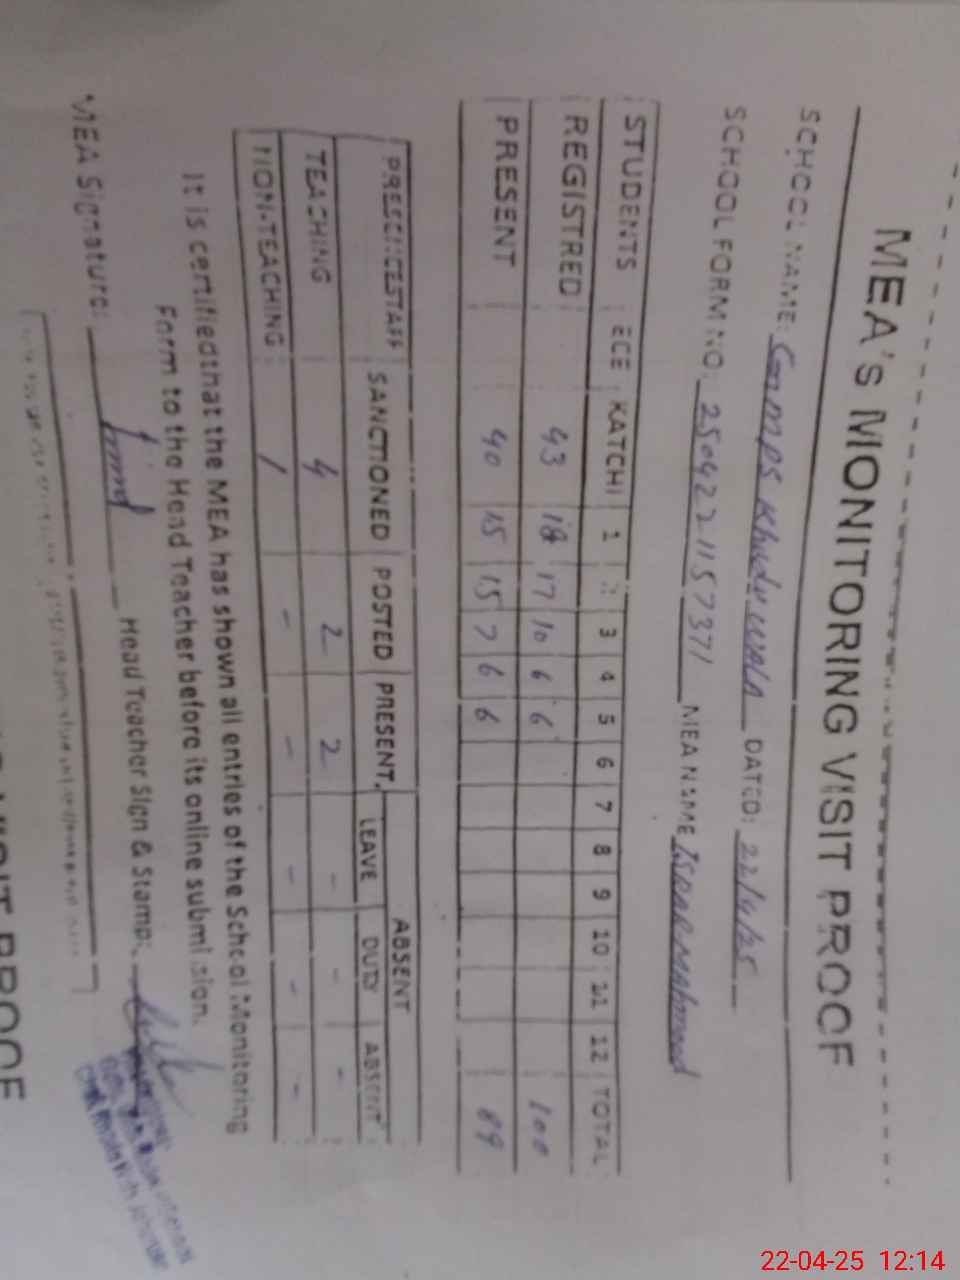 MEA'S MONITORING VISIT PROOF
SCHOOL NAME: GMPS Khudu wala DATED: 22/4/25
SCHOOL FORM NO: 2504221157371 MEA NAME Israr Mahmood
STUDENTS ECE KATCHI 1 2 3 4 5 6 7 8 9 10 11 12 TOTAL
REGISTRED 43 18 17 10 6 6 100
PRESENT 40 15 15 7 6 6 89
PRESENCESTAFF SANCTIONED POSTED PRESENT ABSENT
LEAVE DUTY ABSENT
TEACHING 4 2 2 - - -
NON-TEACHING / - - - - -
It is certifiedthat the MEA has shown all entries of the School Monitoring
Form to the Head Teacher before its online submission.
MEA Signature: Head Teacher Sign & Stamp:
VISIT PROOF
22-04-25 12:14